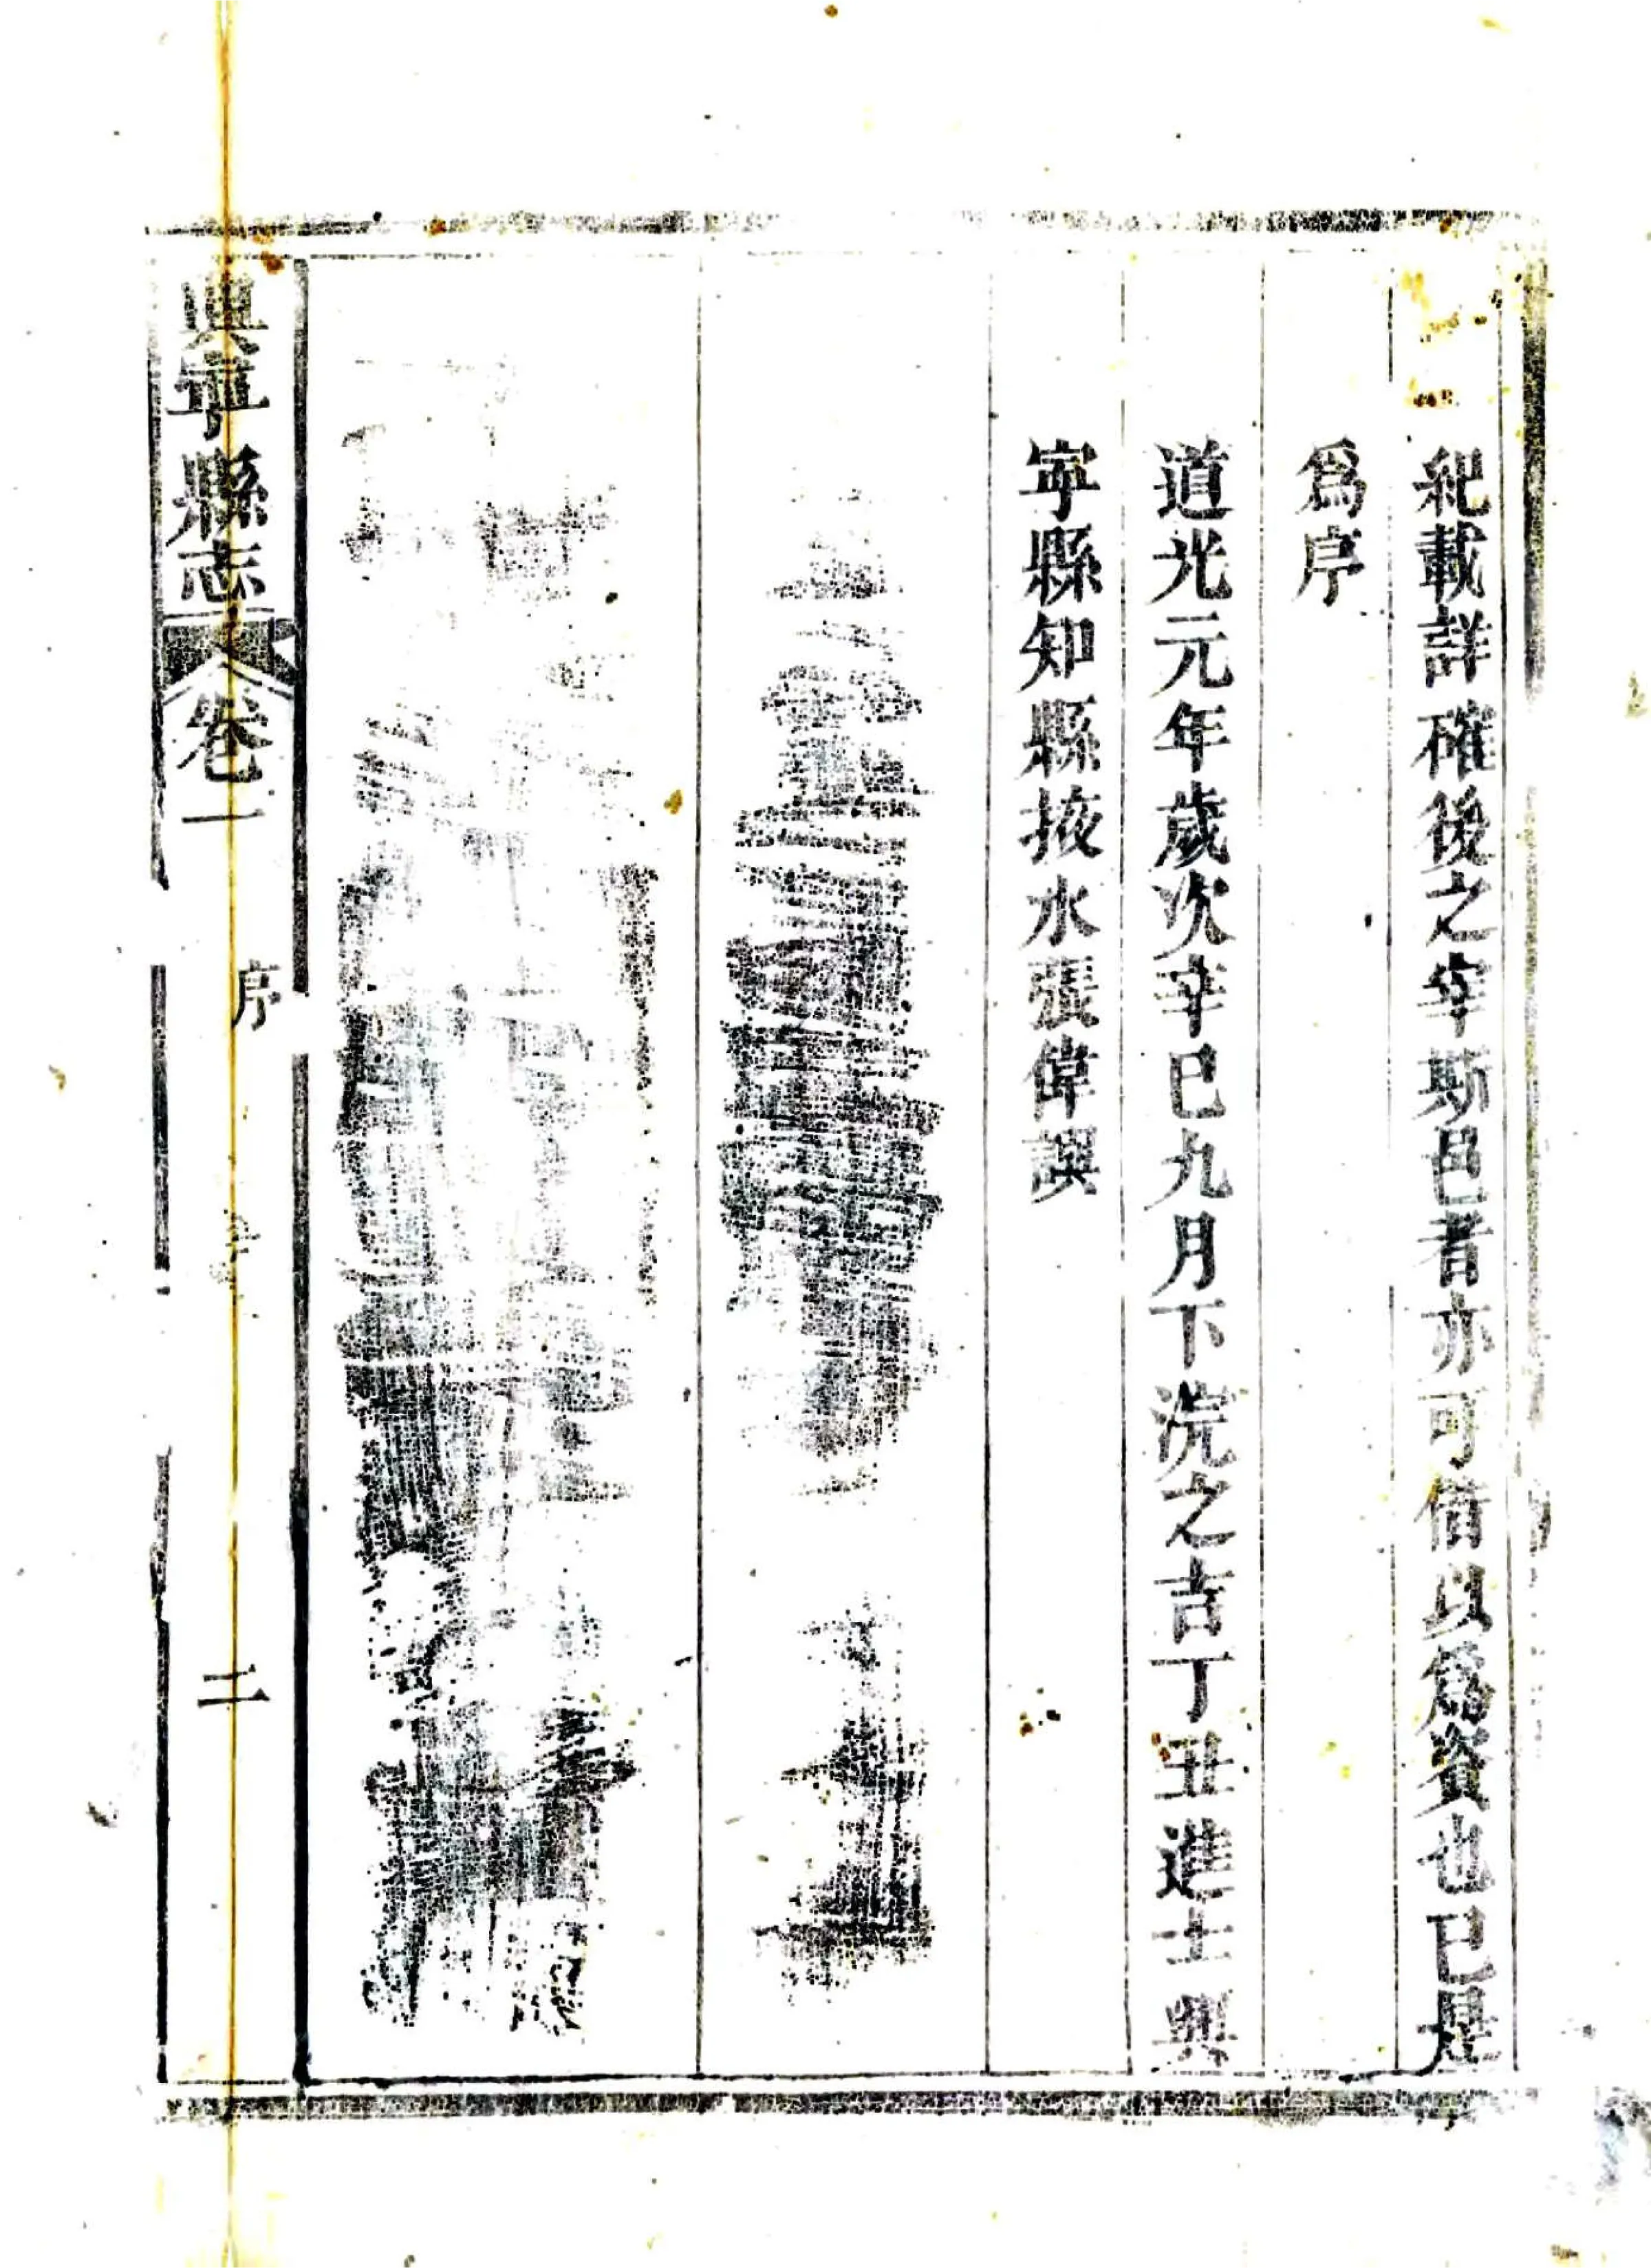 紀載詳確後之宰斯邑者亦可借以爲資也已是
爲序
道光元年歲次辛巳九月下浣之吉丁丑進士興
寧縣知縣掖水張偉譔
興寧縣志 卷一 序 二